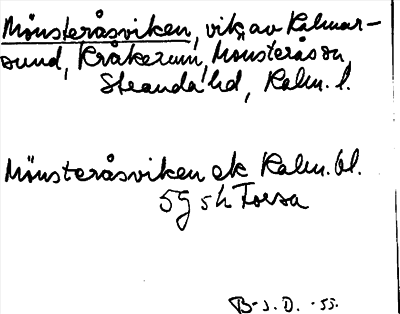 Mönsteråsviken, vik av Kalmar-
sund, Kråkerum, Mönsterås sn,
Stranda hd, Kalm. l.
Mönsteråsviken ek Kalm. bl.
5G sh Torsa
B-s. D. -55.